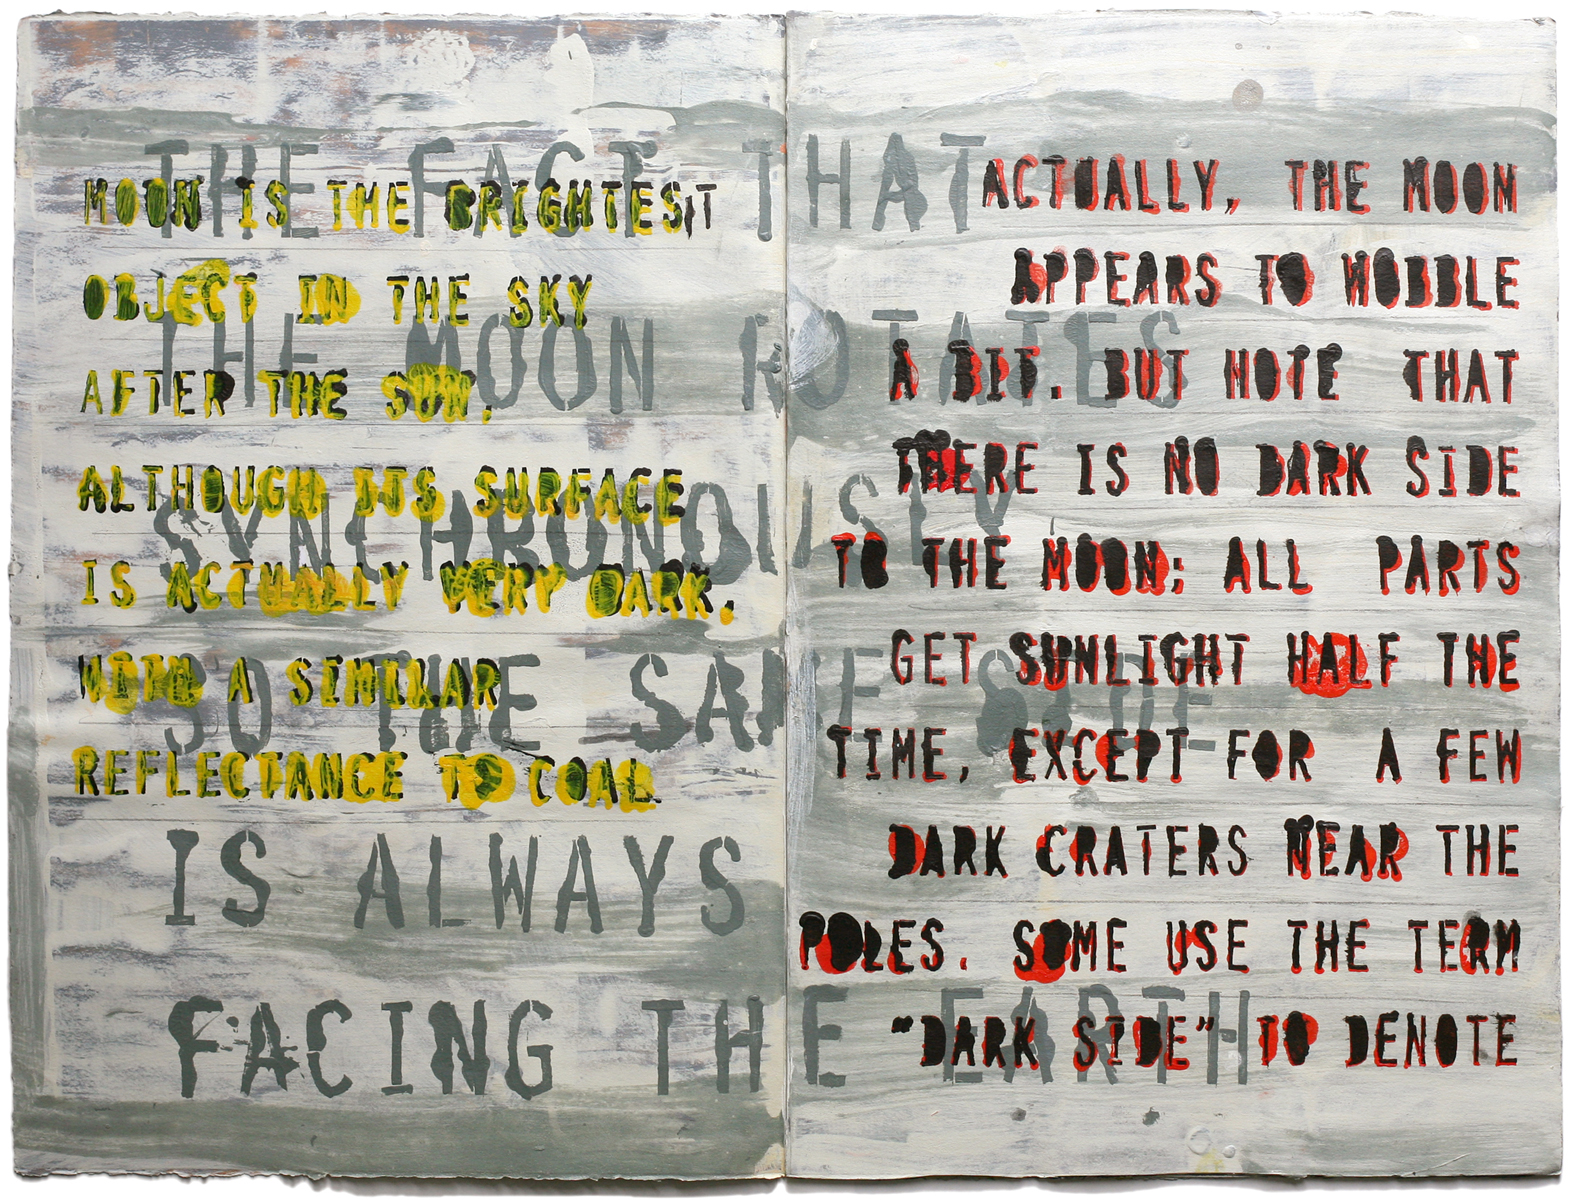 THE FACT THAT
THE MOON ROTATES
SYNCHRONOUSLY
SO THE SAME SIDE
IS ALWAYS
FACING THE EARTH
MOON IS THE BRIGHTEST
OBJECT IN THE SKY
AFTER THE SUN,
ALTHOUGH ITS SURFACE
IS ACTUALLY VERY DARK,
WITH A SIMILAR
REFLECTANCE TO COAL.
ACTUALLY, THE MOON
APPEARS TO WOBBLE
A BIT. BUT NOTE THAT
THERE IS NO DARK SIDE
TO THE MOON; ALL PARTS
GET SUNLIGHT HALF THE
TIME, EXCEPT FOR A FEW
DARK CRATERS NEAR THE
POLES. SOME USE THE TERM
"DARK SIDE" TO DENOTE